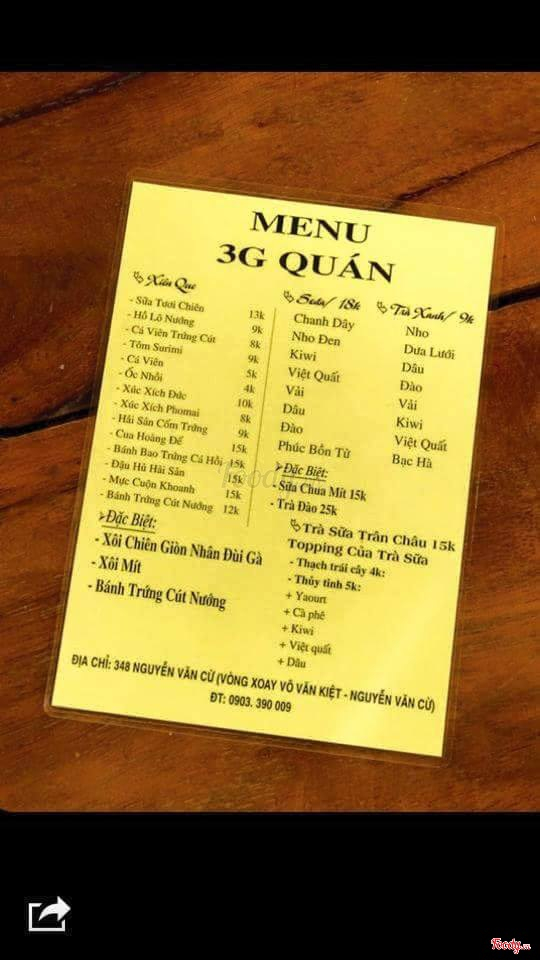 MENU
3G QUÁN
Xiên Que
- Sữa Tươi Chiên 13k
- Hồ Lô Nướng 9k
- Cá Viên Trứng Cút 8k
- Tôm Surimi 9k
- Cá Viên 5k
- Ốc Nhồi 4k
- Xúc Xích Đức 10k
- Xúc Xích Phomai 8k
- Hải Sản Cốm Trứng 9k
- Cua Hoàng Đế 15k
- Bánh Bao Trứng Cá Hồi 15k
- Đậu Hũ Hải Sản 15k
- Mực Cuộn Khoanh 15k
- Bánh Trứng Cút Nướng 12k
Đặc Biệt:
- Xôi Chiên Giòn Nhân Đùi Gà
- Xôi Mít
- Bánh Trứng Cút Nướng
Soda/ 18k
Chanh Dây
Nho Đen
Kiwi
Việt Quất
Vải
Dâu
Đào
Phúc Bồn Tử
Trà Xanh/ 9k
Nho
Dưa Lưới
Dâu
Đào
Vải
Kiwi
Việt Quất
Bạc Hà
Đặc Biệt:
- Sữa Chua Mít 15k
- Trà Đào 25k
Trà Sữa Trân Châu 15k
Topping Của Trà Sữa
- Thạch trái cây 4k:
- Thủy tinh 5k:
+ Yaourt
+ Cà phê
+ Kiwi
+ Việt quất
+ Dâu
ĐỊA CHỈ: 348 NGUYỄN VĂN CỪ (VÒNG XOAY VÕ VĂN KIỆT - NGUYỄN VĂN CỪ)
ĐT: 0903. 390 009
Foody.vn